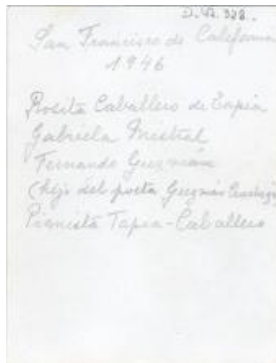 San Francisco de California
1946
Rosita Caballero de Tapia
Gabriela Mistral
Fernando Guzmán
(hijo del poeta Guzmán
Pianista Tapia-Caballero